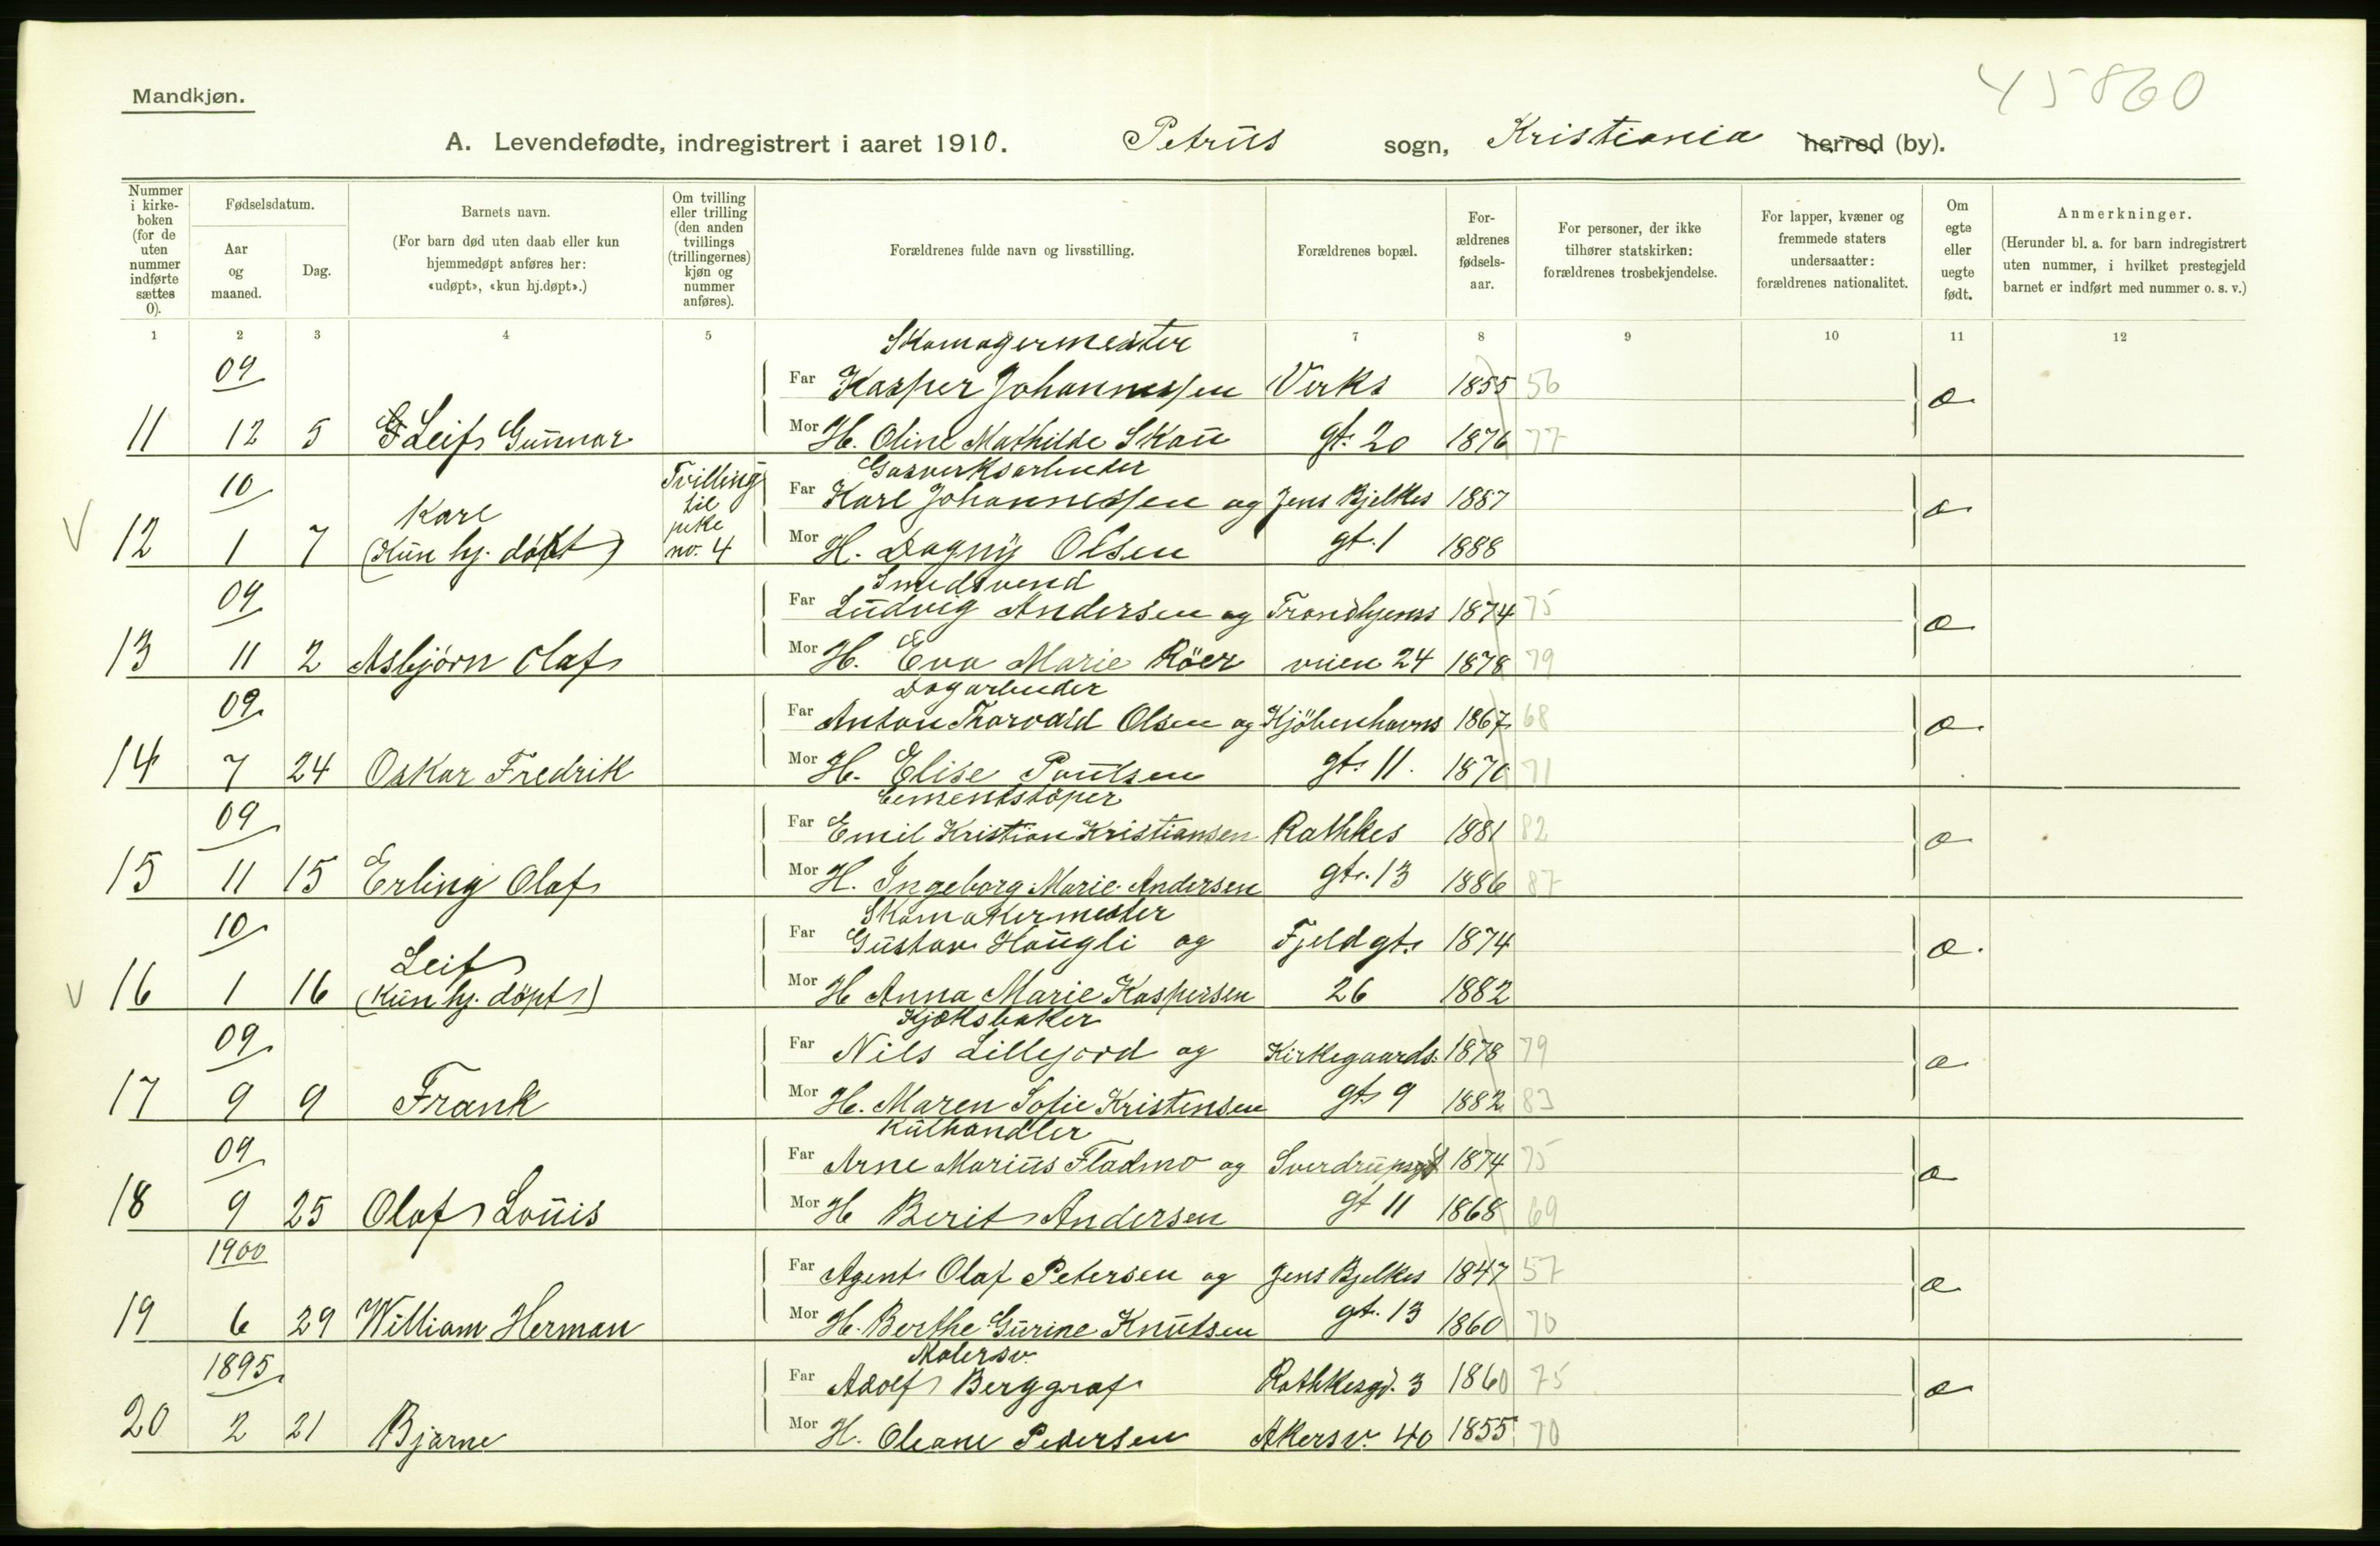 45860
Mandkjøn.
A. Levendefødte, indregistrert i aaret 1910. Petrus sogn, Kristiania herred (by).
Nummer i kirkeboken (for de uten nummer indførte sættes 0).
Fødselsdatum.
Aar og maaned.
Dag.
Barnets navn.
(For barn død uten daab eller kun hjemmedøpt anføres her: «udøpt», «kun hj.døpt».)
Om tvilling eller trilling (den anden tvillings (trillingernes) kjøn og nummer anføres).
Forældrenes fulde navn og livsstilling.
Forældrenes bopæl.
Forældrenes fødselsaar.
For personer, der ikke tilhører statskirken: forældrenes trosbekjendelse.
For lapper, kvæner og fremmede staters undersaatter: forældrenes nationalitet.
Om egte eller uegte født.
Anmerkninger.
(Herunder bl. a. for barn indregistrert uten nummer, i hvilket prestegjeld barnet er indført med nummer o. s. v.)
1 2 3 4 5 7 8 9 10 11 12
Skomagermester
09 Far Kasper Johannessen Verks 1855 56 æ
11 12 5 Leif Gunnar Mor H. Oline Mathilde Skau gt. 20 1876 77
Gasverksarbeider
10 Tvilling til pike no. 4 Far Karl Johannessen og Jens Bjelkes 1887 æ
V 12 1 7 Kare (Kun hj. døbt) Mor H. Dagny Olsen gt. 1 1888
Smedsvend
09 Far Ludvig Andersen og Trondhjems 1874 75 æ
13 11 2 Asbjörn Olaf Mor H. Eva Marie Röer veien 24 1878 79
Dagarbeider
09 Far Anton Thorvald Olsen og Kjöbenhavns 1867 68 æ
14 7 24 Oskar Fredrik Mor H. Elise Poulsen gt. 11. 1870 71
Cementstöper
09 Far Emil Kristian Kristiansen Rathkes 1881 82 æ
15 11 15 Erling Olaf Mor H. Ingeborg Marie Andersen gt. 13 1886 87
Skomakermester
10 Far Gustav Haugli og Fjeldgt. 1874 æ
V 16 1 16 Leif (Kun hj. döpt) Mor H Anna Marie Kaspersen 26 1882
Kjæksbaker
09 Far Nils Lillejord og Kirkegaards. 1878 79 æ
17 9 9 Frank Mor H. Maren Sofie Kristensen gt. 9 1882 83
Kulhandler
09 Far Arne Marius Fladmo og Sverdrupsgt 1874 75 æ
18 9 25 Olaf Louis Mor H Berit Andersen gt 11 1868 69
1900 Far Agent Olaf Petersen og Jens Bjelkes 1847 57 æ
19 6 29 William Herman Mor H. Berthe Gurine Knutsen gt. 13 1860 70
Malersv.
1895 Far Adolf Berggraf Rathkesgd. 3 1860 75 æ
20 2 21 Bjarne Mor H. Oleane Pedersen Akersv. 40 1855 70